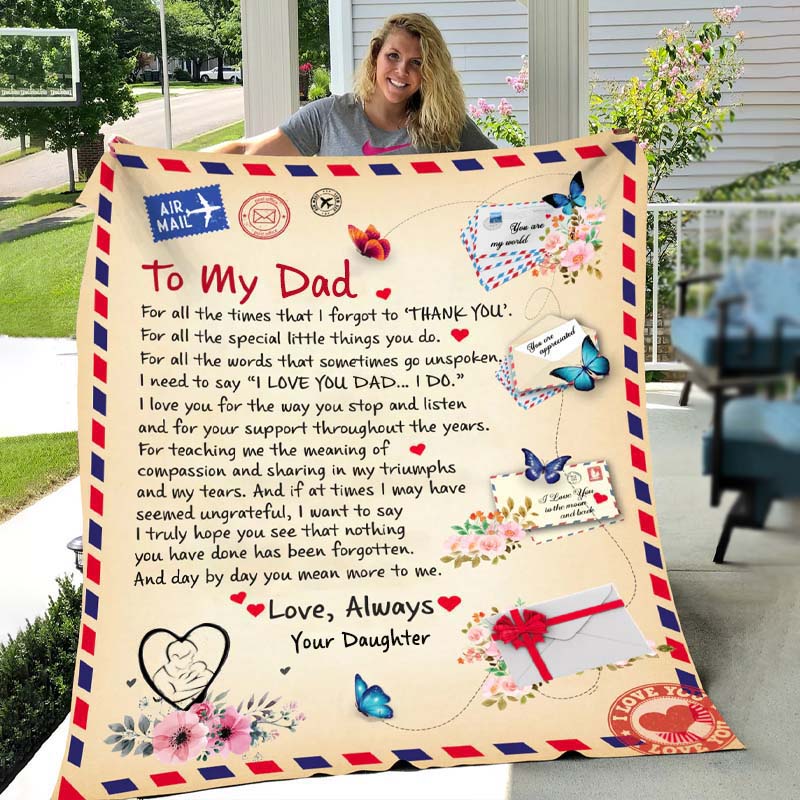 AIR
MAIL
You are
my world
To My Dad
For all the times that I forgot to 'THANK YOU'.
For all the special little things you do.
For all the words that sometimes go unspoken.
I need to say "I LOVE YOU DAD... I DO."
I love you for the way you stop and listen
and for your support throughout the years.
For teaching me the meaning of
compassion and sharing in my triumphs
and my tears. And if at times I may have
seemed ungrateful, I want to say
I truly hope you see that nothing
you have done has been forgotten.
And day by day you mean more to me.
Love, Always
Your Daughter
You are
appreciated
I Love You
to the moon
and back
I LOVE YOU
LOVE YOU